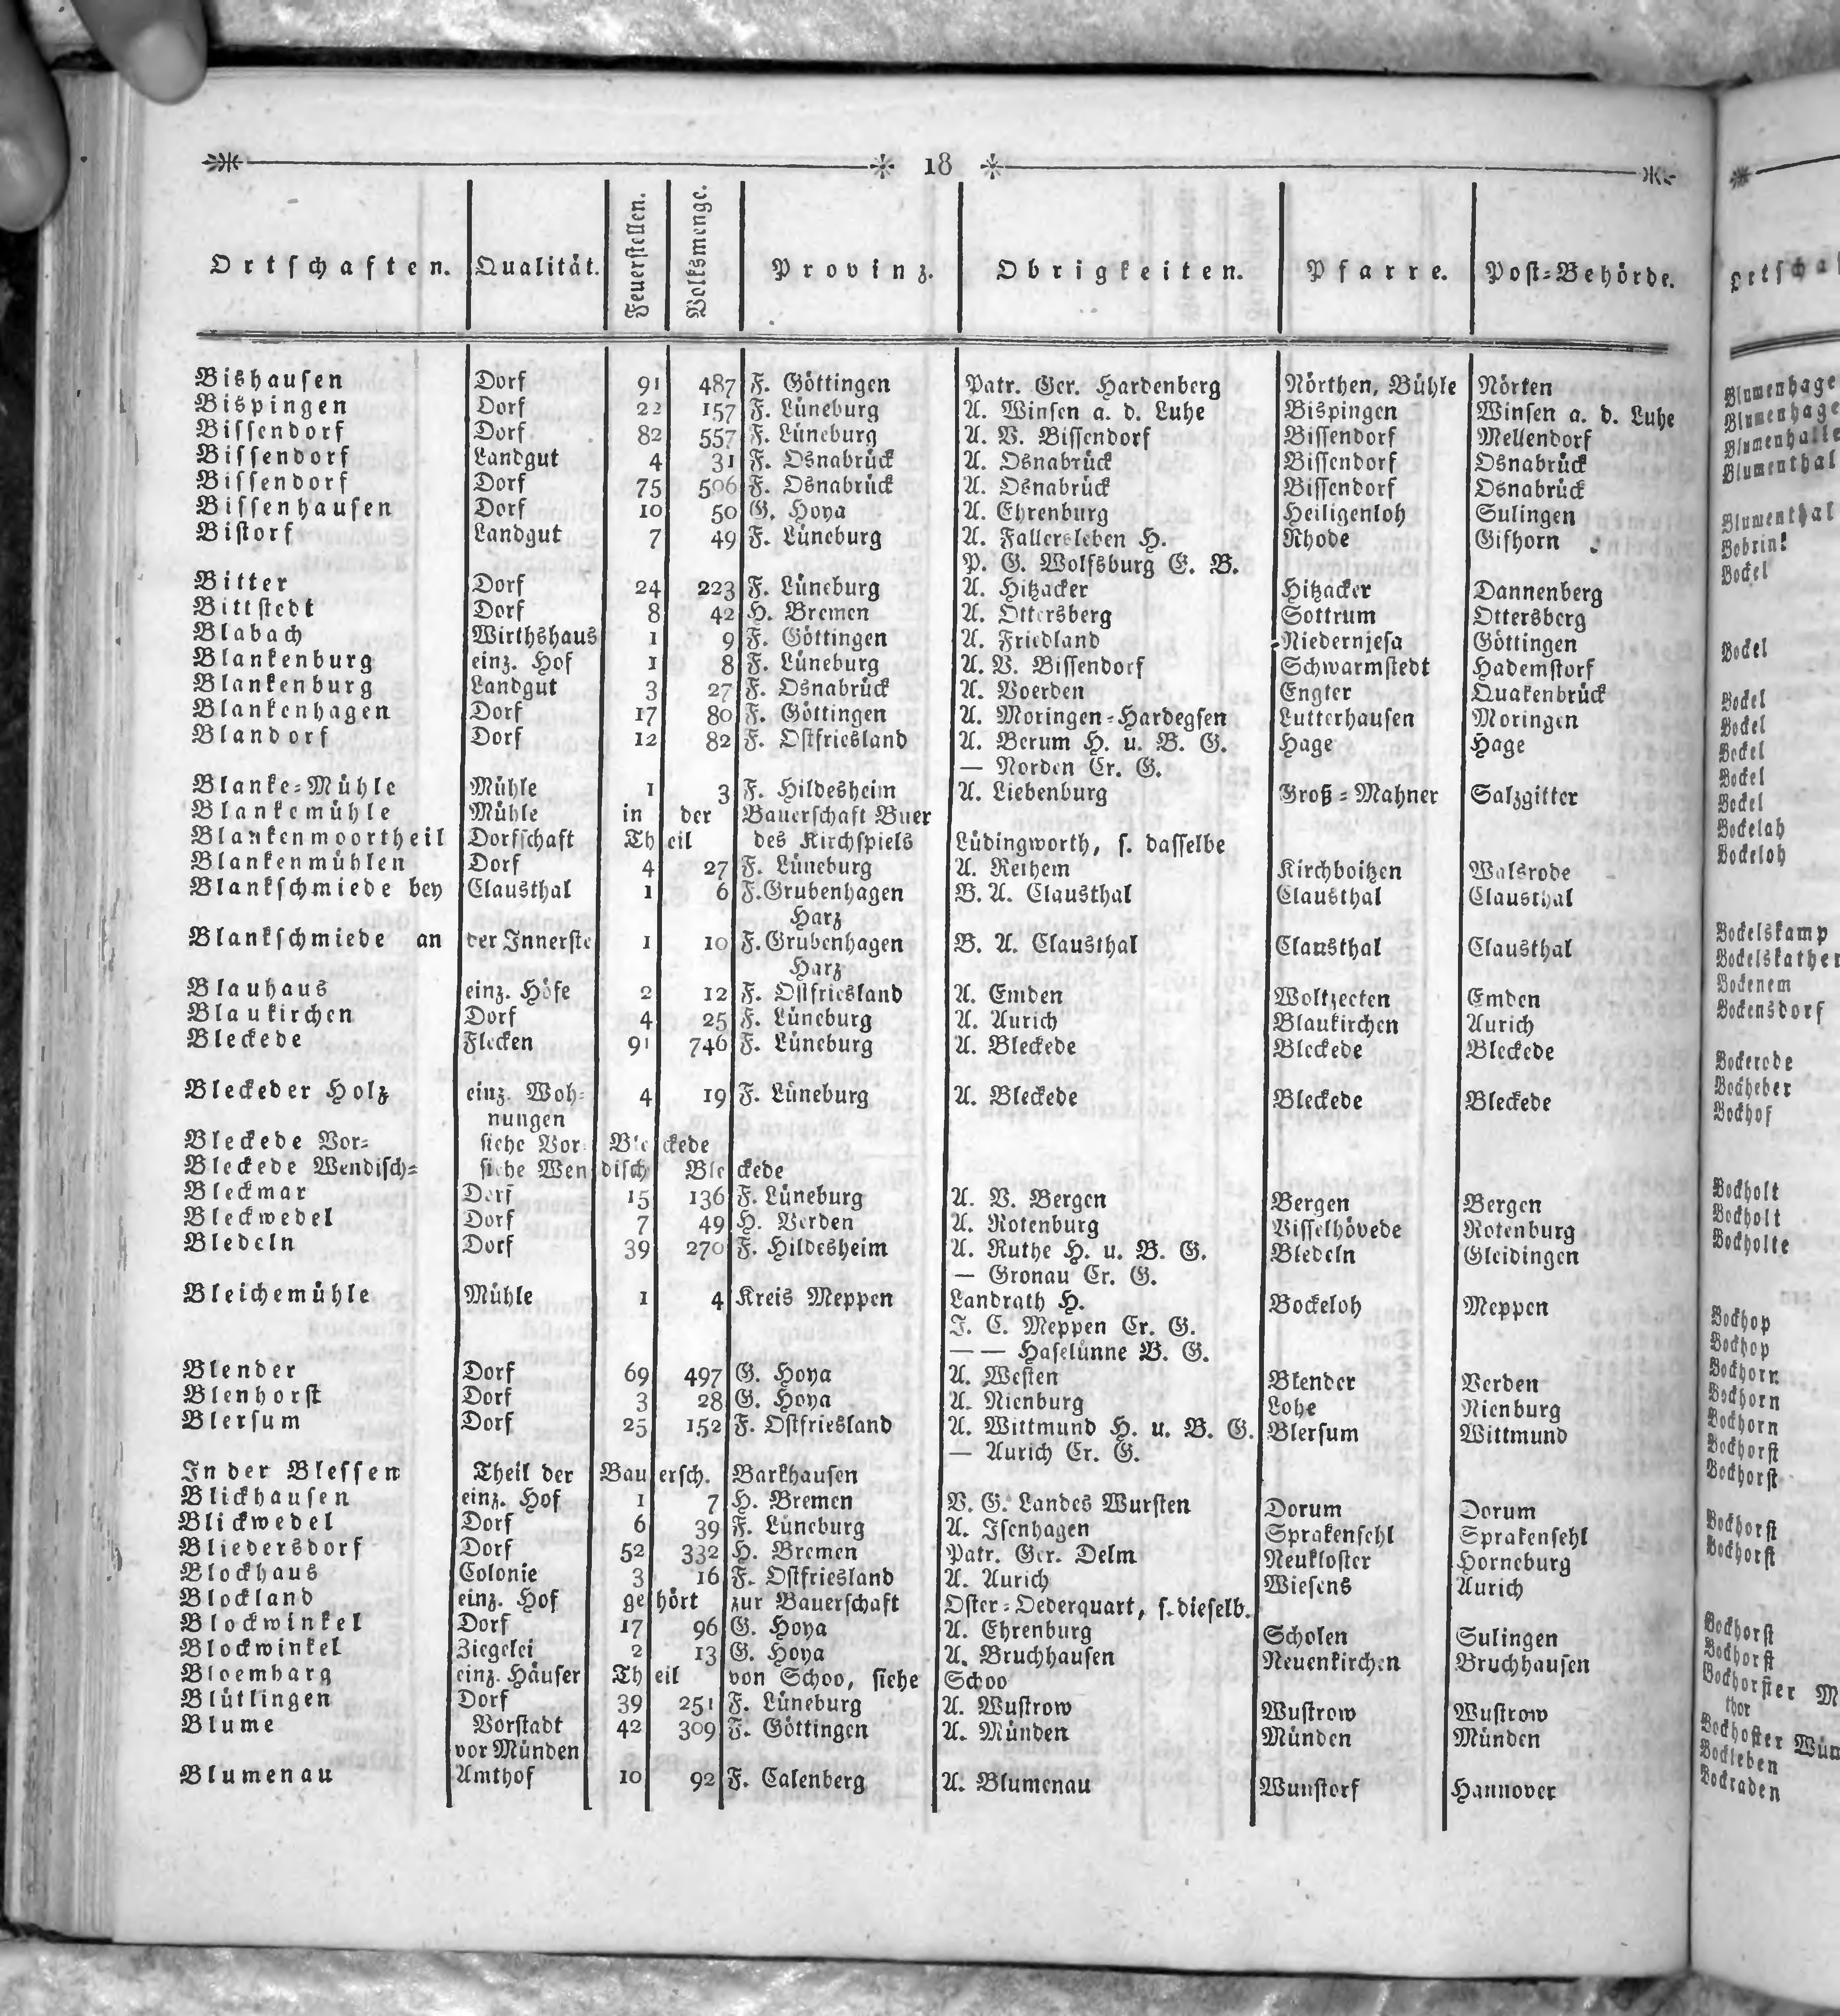 18
Ortschaften. Qualität. Feuerstellen. Volksmenge. Provinz. Obrigkeiten. Pfarre. Post=Behörde.
Bishausen Dorf 91 487 F. Göttingen Patr. Ger. Hardenberg Nörthen, Bühle Nörten
Bispingen Dorf 22 157 F. Lüneburg A. Winsen a. d. Luhe Bispingen Winsen a. d. Luhe
Bissendorf Dorf 82 557 F. Lüneburg A. V. Bissendorf Bissendorf Mellendorf
Bissendorf Landgut 4 31 F. Osnabrück A. Osnabrück Bissendorf Osnabrück
Bissendorf Dorf 75 506 F. Osnabrück A. Osnabrück Bissendorf Osnabrück
Bissenhausen Dorf 10 50 G. Hoya A. Ehrenburg Heiligenloh Sulingen
Bistorf Landgut 7 49 F. Lüneburg A. Fallersleben H. Rhode Gifhorn
P. G. Wolfsburg C. B.
Bitter Dorf 24 223 F. Lüneburg A. Hitzacker Hitzacker Dannenberg
Bittstedt Dorf 8 42 H. Bremen A. Ottersberg Sottrum Ottersberg
Blabach Wirthshaus 1 9 F. Göttingen A. Friedland Niedernjesa Göttingen
Blankenburg einz. Hof 1 8 F. Lüneburg A. V. Bissendorf Schwarmstedt Hademstorf
Blankenburg Landgut 3 27 F. Osnabrück A. Voerden Engter Quakenbrück
Blankenhagen Dorf 17 80 F. Göttingen A. Moringen=Hardegsen Lutterhausen Moringen
Blandorf Dorf 12 82 F. Ostfriesland A. Berum H. u. B. G. Hage Hage
— Norden Cr. G.
Blanke=Mühle Mühle 1 3 F. Hildesheim A. Liebenburg Groß=Mahner Salzgitter
Blankemühle Mühle in der Bauerschaft Buer
Blankenmoortheil Dorfschaft Theil des Kirchspiels Lüdingworth, s. dasselbe
Blankenmühlen Dorf 4 27 F. Lüneburg A. Rethem Kirchboitzen Walsrode
Blankschmiede bey Clausthal 1 6 F. Grubenhagen B. A. Clausthal Clausthal Clausthal
Harz
Blankschmiede an der Innerste 1 10 F. Grubenhagen B. A. Clausthal Clausthal Clausthal
Harz
Blauhaus einz. Höfe 2 12 F. Ostfriesland A. Emden Woltzecten Emden
Blaukirchen Dorf 4 25 F. Lüneburg A. Aurich Blaukirchen Aurich
Bleckede Flecken 91 746 F. Lüneburg A. Bleckede Bleckede Bleckede
Bleckeder Holz einz. Woh= 4 19 F. Lüneburg A. Bleckede Bleckede Bleckede
nungen
Bleckede Vor= siehe Vor Bleckede
Bleckede Wendisch= siehe Wendisch Bleckede
Bleckmar Dorf 15 136 F. Lüneburg A. V. Bergen Bergen Bergen
Bleckwedel Dorf 7 49 H. Verden A. Rotenburg Visselhövede Rotenburg
Bledeln Dorf 39 270 F. Hildesheim A. Ruthe H. u. B. G. Bledeln Gleidingen
— Gronau Cr. G.
Bleichemühle Mühle 1 4 Kreis Meppen Landrath H. Bockeloh Meppen
J. C. Meppen Cr. G.
— — Haselünne B. G.
Blender Dorf 69 497 G. Hoya A. Westen Blender Verden
Blenhorst Dorf 3 28 G. Hoya A. Nienburg Lohe Nienburg
Blersum Dorf 25 152 F. Ostfriesland A. Wittmund H. u. B. G. Blersum Wittmund
— Aurich Cr. G.
In der Blessen Theil der Bauersch. Barkhausen
Blickhausen einz. Hof 1 7 H. Bremen V. G. Landes Wursten Dorum Dorum
Blickwedel Dorf 6 39 F. Lüneburg A. Isenhagen Sprakensehl Sprakensehl
Bliedersdorf Dorf 52 332 H. Bremen Patr. Ger. Delm Neukloster Horneburg
Blockhaus Colonie 3 16 F. Ostfriesland A. Aurich Wiesens Aurich
Blockland einz. Hof gehört zur Bauerschaft Oster=Oederquart, s. dieselb.
Blockwinkel Dorf 17 96 G. Hoya A. Ehrenburg Scholen Sulingen
Blockwinkel Ziegelei 2 13 G. Hoya A. Bruchhausen Neuenkirchen Bruchhausen
Bloembarg einz. Häuser Theil von Schoo, siehe Schoo
Blütlingen Dorf 39 251 F. Lüneburg A. Wustrow Wustrow Wustrow
Blume Vorstadt 42 309 F. Göttingen A. Münden Münden Münden
vor Münden
Blumenau Amthof 10 92 F. Calenberg A. Blumenau Wunstorf Hannover
Ortscha
Blumenhage
Blumenhage
Blumenhalle
Blumenthal
Blumenthal
Bobrink
Bockel
Bockel
Bockel
Bockel
Bockel
Bockel
Bockel
Bockelah
Bockeloh
Bockelskamp
Bockelskather
Bockenem
Bockensdorf
Bockerode
Bockheber
Bockhof
Bockholt
Bockholt
Bockholte
Bockhop
Bockhop
Bockhorn
Bockhorn
Bockhorn
Bockhorst
Bockhorst
Bockhorst
Bockhorst
Bockhorst
Bockhorst
Bockhorster M
thor
Bockhoster Wüm
Bockleben
Bockraden